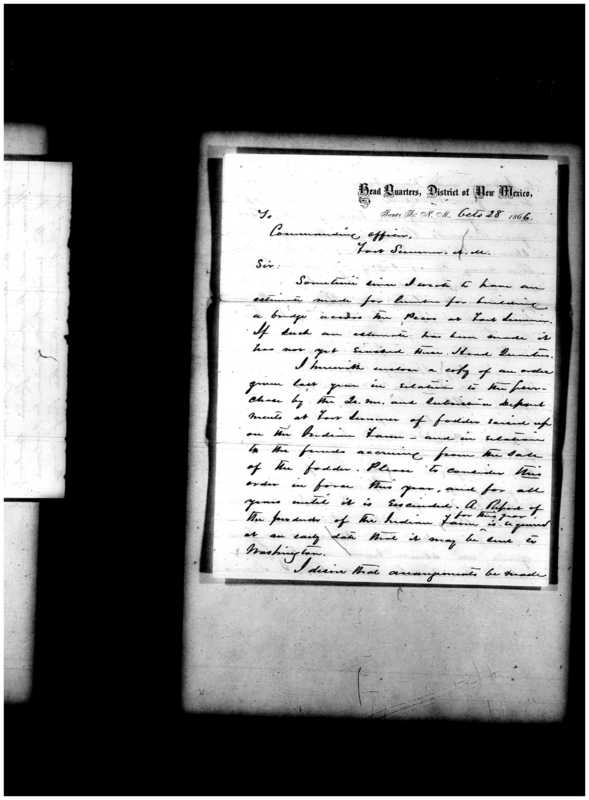 Head Quarters, District of New Mexico,
Santa Fe N. M. Octo 28 1866.
To
Commanding Officer,
Fort Sumner. N. M.
Sir:
Sometime since I wrote to have an
estimate made for lumber for building
a bridge across the Pecos at Fort Sumner.
If such an estimate has been made it
has not yet reached these Head Quarters.
I herewith enclose a copy of an order
given last year in relation to the pur-
chase by the Q. M. and Subsistence Depart
ments at Fort Sumner of fodder raised up
on the Indian Farm - and in relation
to the funds accruing from the sale
of the fodder. Please to consider this
order in force this year, and for all
years until it is rescinded. A Report of
the products of the Indian Farm for this year is required
at an early date that it may be sent to
Washington.
I desire that arrangements be made